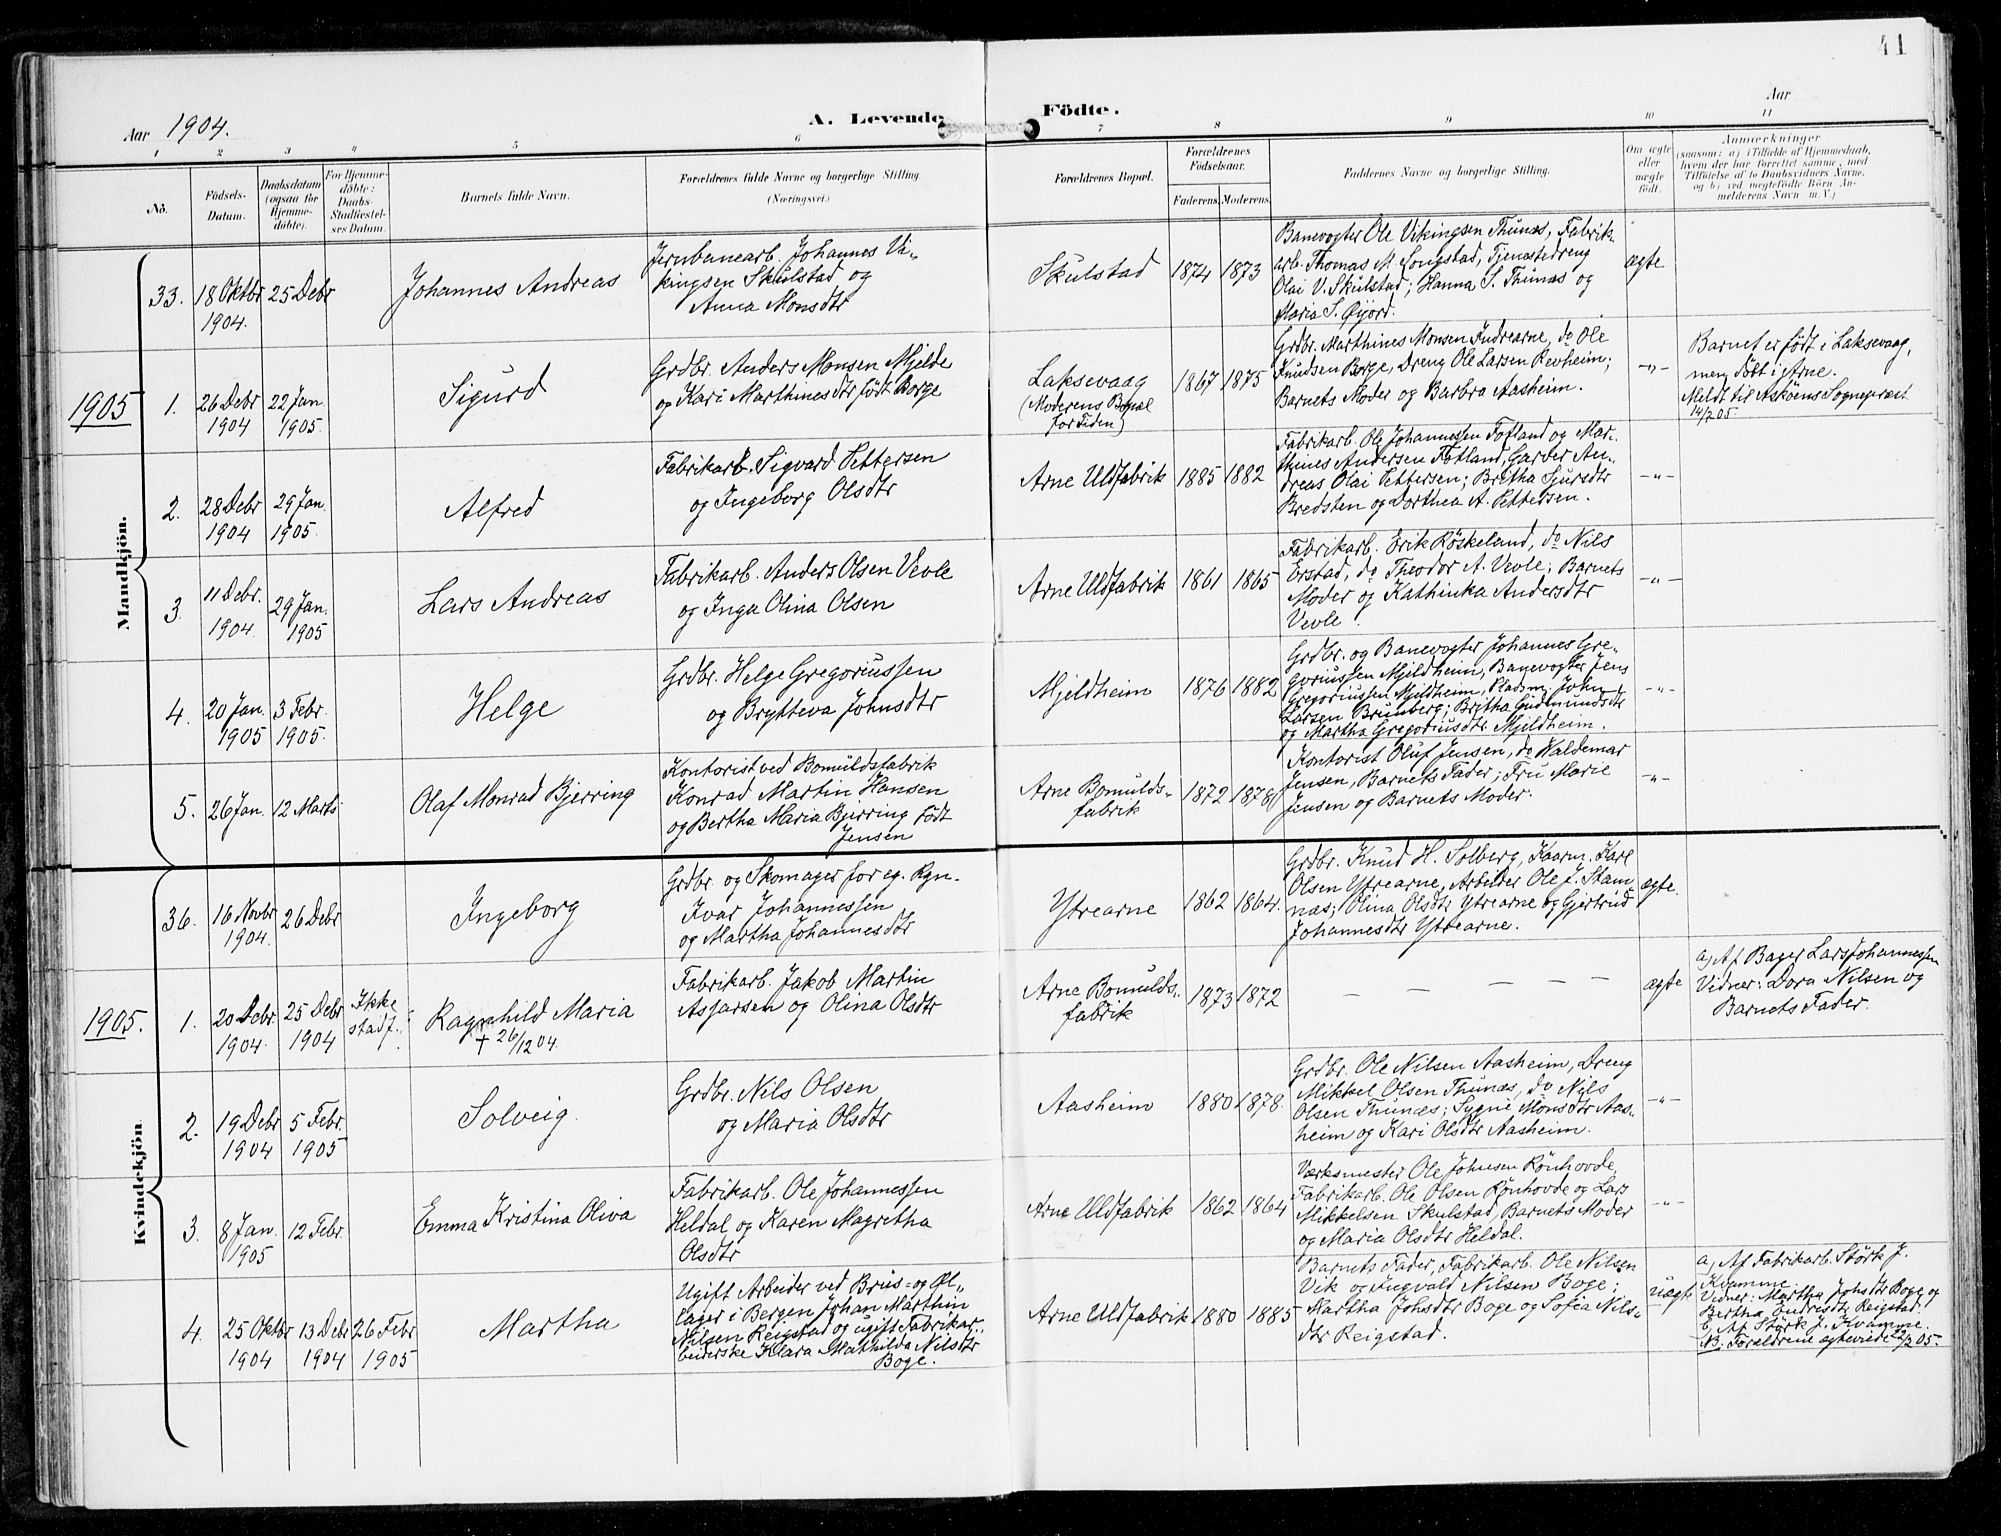 41
Aar 1904.
A. Levende
Födte.
Aar
1
2
3
4
5
6
7
8
9
10
11
No.
Födsels-
Datum.
Daabsdatum
(ogsaa for
Hjemme-
döbte).
For Hjemme-
döbte:
Daabs-
Stadfæstel-
ses Datum.
Barnets fulde Navn.
Forældrenes fulde Navne og borgerlige Stilling.
(Næringsvei.)
Forældrenes Bopæl.
Forældrenes
Födselsaar.
Faderens.
Moderens.
Faddernes Navne og borgerlige Stilling.
Om ægte
eller
uægte
födt.
Anmærkninger
(saasom: a) i Tilfælde af Hjemmedaab,
hvem der har forrettet samme, med
Tilföielse af to Daabsvidners Navne,
og b) ved uægtefödte Börn An-
melderens Navn m. V.)
Mandkjön.
33.
18 Oktbr
1904.
25 Debr
Johannes Andreas
Jernbanearb. Johannes Vi-
kingsen Skulstad og
Anna Monsdtr
Skulstad
1874
1873
Banevogter Ole Vikingsen Thunæs, Fabrik-
arb. Thomas M. Songstad, Tjenestedreng
Olai V. Skulstad; Hanna S. Thunæs og
Maria S. Øyjord.
ægte
1905
1.
26 Debr
1904
22 Jan
1905.
Sigurd
Grdbr. Anders Monsen Mjelde
og Kari Marthinesdtr født Borge
Laksevaag
(Moderens Bopæl
for Tiden)
1867
1875
Grdbr. Marthines Monsen Indrearne, do Ole
Knudsen Borge, Dreng Ole Larsen Revheim;
Barnets Moder og Barbra Aasheim.
-"-
Barnet er født i Laksevaag,
men døbt i Arne.
Meldt til Askøens Sognepræst
14/2 05
2.
28 Debr
1904
29 Jan.
1905.
Alfred
Fabrikarb. Sigvard Pettersen
og Ingeborg Olsdtr
Arne Uldfabrik
1885
1882
Fabrikarb. Ole Johannessen Totland og Mar-
thines Andersen Totland, Garder An-
dreas Olai Pettersen; Britha Sjursdtr
Bredsten og Dorthea A. Pettersen.
-"-
3
11 Debr.
1904.
29 Jan.
1905
Lars Andreas
Fabrikarb. Anders Olsen Vevle
og Inga Olina Olsen
Arne Uldfabrik
1861
1865
Fabrikarb. Erik Røskeland, do Nils
Erstad, do Theodor A. Vevle; Barnets
Moder og Kathinka Andersdtr
Vevle.
-"-
4.
20 Jan.
1905
3 Febr.
1905.
Helge
Grdbr. Helge Gregoriussen
og Brytteva Johnsdtr
Mjeldheim
1876
1882
Grdbr. og Banevogter Johannes Gre-
goriussen Mjeldheim, Banevogter Jens
Gregoriussen Mjeldheim, Pladsm. John
Larsen Brunberg; Britha Gudmundsdtr
og Martha Gregoriusdtr Mjeldheim.
-"-
5.
26 Jan.
12 Marts
Olaf Monrad Bjerring
Kontorist ved Bomuldsfabrik
Konrad Martin Hansen
og Bertha Maria Bjerring født
Jensen
Arne Bomulds-
fabrik
1872
1878
Kontorist Oluf Jensen, do Valdemar
Jensen, Barnets Fader; Fru Marie
Jensen og Barnets Moder.
-"-
Kvindekjön.
36.
16 Novbr
1904.
26 Debr
Ingeborg
Grdbr. og Skomager for eg. Rgn.
Ivar Johannessen
og Martha Johannesdtr
Ytrearne
1862
1864.
Grdbr. Knud H. Solberg, Kaarm. Karl
Olsen Ytrearne, Arbeider Ole J. Stam-
næs; Olina Olsdtr Ytrearne og Gjertrud
Johannesdtr Ytrearne.
ægte.
1905.
1.
20 Debr.
1904.
25 Debr
1904
Ikke
stadf.
Ragnhild Maria
† 26/12 04.
Fabrikarb. Jakob Martin
Asjarsen og Olina Olsdtr
Arne Bomulds-
fabrik
1873
1872
— — — — —
ægte
a, Af Bager Lars Johannessen
Vidner: Dora Nilsen og
Barnets Fader.
2.
19 Debr
1904
5 Febr.
1905
Solveig.
Grdbr. Nils Olsen
og Maria Olsdtr
Aasheim
1880
1878.
Grdbr. Ole Nilsen Aasheim, Dreng
Mikkel Olsen Thunæs, do Nils
Olsen Thunæs; Sygne Monsdtr Aas-
heim og Kari Olsdtr Aasheim.
-"-
3.
8 Jan.
1905
12 Febr.
Emma Kristina Oliva
Fabrikarb. Ole Johannessen
Heldal og Karen Magretha
Olsdtr
Arne Uldfabrik
1862
1864
Værksmester Ole Johnsen Rønhovde,
Fabrikarb. Ole Olsen Rønhovde og Lars
Mikkelsen Skulstad, Barnets Moder
og Maria Olsdtr Heldal.
-"-
4.
25 Oktbr
1904
13 Debr
1904
26 Febr
1905
Martha
Ugift Arbeider ved Brus- og Øl-
lager i Bergen Johan Marthin
Nilsen Reigstad og ugift Fabrikar-
beiderske Klara Mathilda Nilsdtr
Boge.
Arne Uldfabrik
1880
1885
Barnets Fader, Fabrikarb. Ole Nilsen
Vik og Ingvald Nilsen Boge;
Martha Johsdtr Boge og Sofia Nils-
dtr Reigstad.
uægte
a, Af Fabrikarb. Størk J.
Kvamme.
Vidner: Martha Johsdtr Boge og
Bertha Endresdtr Reigstad.
b, Af Størk J. Kvamme.
NB. Forældrene ægteviede 26/2 05.